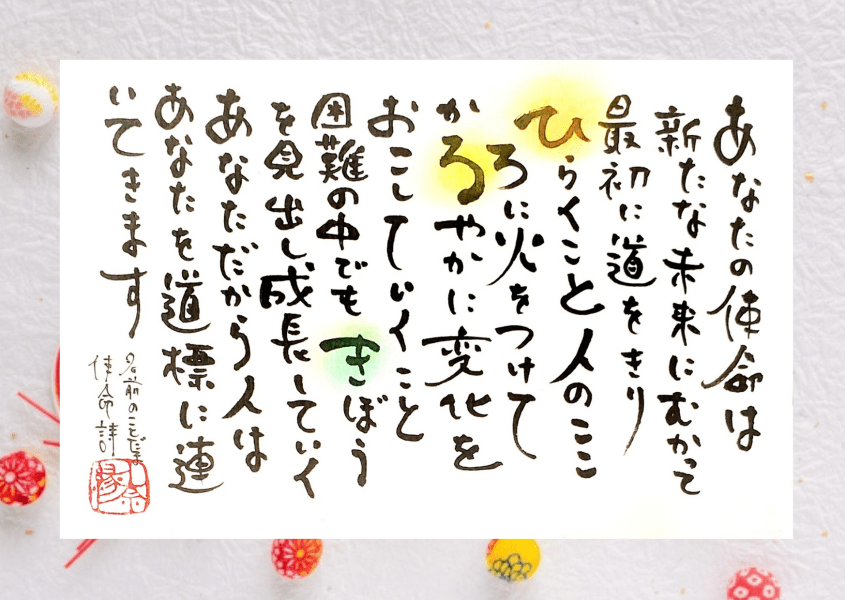 あなたの使命は
新たな未来にむかって
最初に道をきり
ひらくこと人のここ
ろに火をつけて
かるやかに変化を
おこしていくこと
困難の中でもきぼう
を見出し成長していく
あなただから人は
あなたを道標に連
いてきます
名前のことだま
使命詩